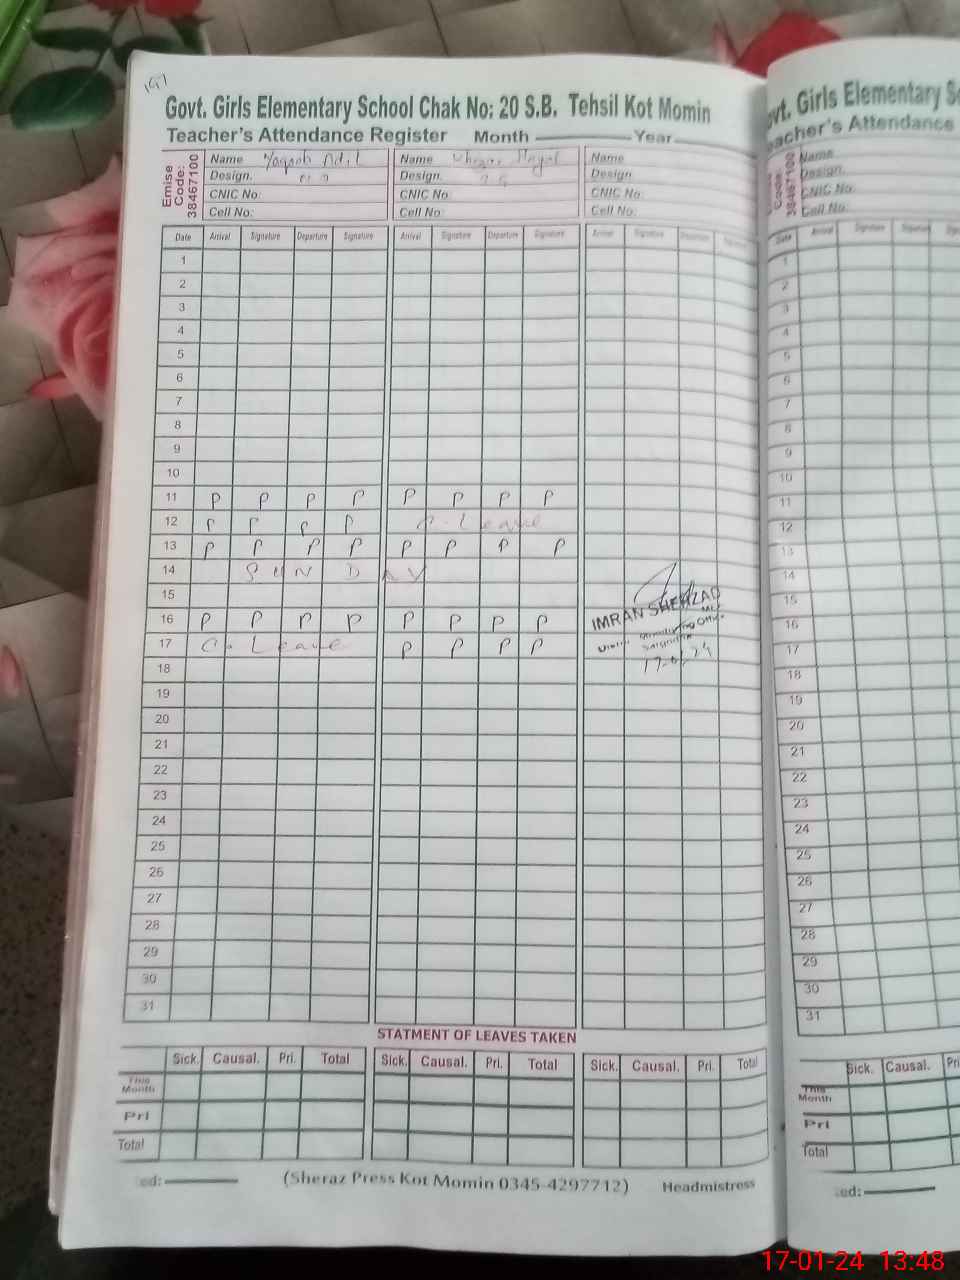 Govt. Girls Elementary School Chak No: 20 S.B. Tehsil Kot Momin
Teacher's Attendance Register Month Year
Emise Code: 38467100
Name Name Name
Design. Design. Design
CNIC No: CNIC No: CNIC No:
Cell No: Cell No: Cell No:
Date Arrival Signature Departure Signature Arrival Signature Departure Signature Arrival Signature Departure
1
2
3
4
5
6
7
8
9
10
11 P P P P P P P P
12 P P P P C. Leave
13 P P P P P P P P
14 SUNDAY
15
16 P P P P P P P P
17 C. Leave P P P P
18
19
20
21
22
23
24
25
26
27
28
29
30
31
IMRAN SHEHZAD
Monitoring Officer
STATMENT OF LEAVES TAKEN
Sick. Causal. Pri. Total Sick. Causal. Pri. Total Sick. Causal. Pri. Total
This Month
Pri
Total
ed:
(Sheraz Press Kot Momin 0345-4297712) Headmistress
Girls Elementary
Teacher's Attendance
Code: 38467100
Name
Design.
CNIC No
Cell No:
Date Arrival Signature
1
2
3
4
5
6
7
8
9
10
11
12
13
14
15
16
17
18
19
20
21
22
23
24
25
26
27
28
29
30
31
Sick. Causal.
This Month
Pri
Total
ed:
17-01-24 13:48